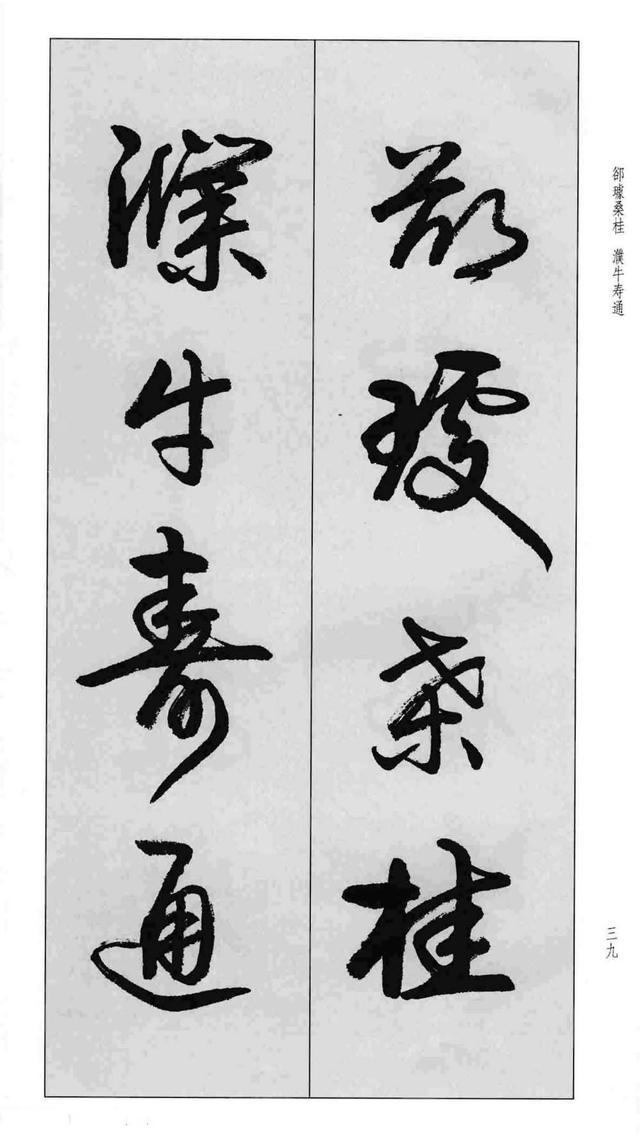 郤璩桑桂
濮牛寿通
郤璩桑桂 濮牛寿通
三九